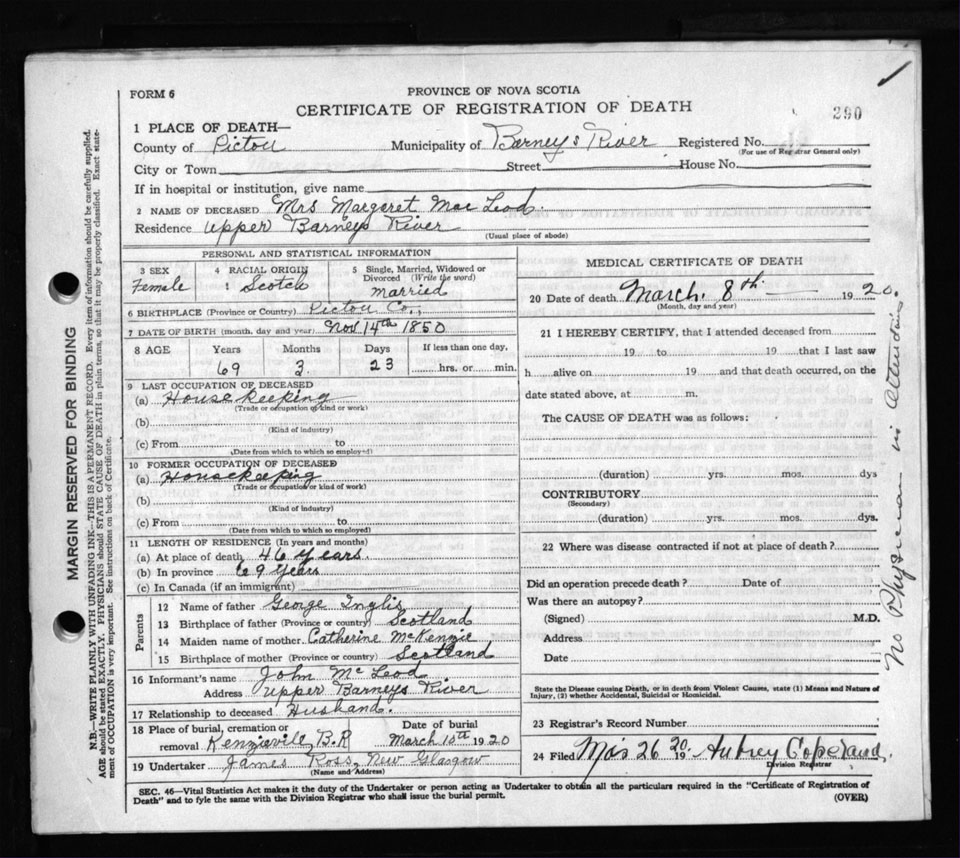 FORM 6
PROVINCE OF NOVA SCOTIA
CERTIFICATE OF REGISTRATION OF DEATH
290
1 PLACE OF DEATH—
County of Pictou Municipality of Barneys River Registered No.
(For use of Registrar General only)
City or Town Street House No.
If in hospital or institution, give name
2 NAME OF DECEASED Mrs Margaret Mac Leod.
Residence Upper Barneys River
(Usual place of abode)
PERSONAL AND STATISTICAL INFORMATION
3 SEX 4 RACIAL ORIGIN 5 Single, Married, Widowed or Divorced (Write the word)
Female : Scotch married
6 BIRTHPLACE (Province or Country) Pictou Co.,
7 DATE OF BIRTH (month, day and year) Nov. 14th 1850
8 AGE Years Months Days If less than one day,
69 3 23 hrs. or min.
9 LAST OCCUPATION OF DECEASED
(a) Housekeeping
(Trade or occupation of kind or work)
(b)
(Kind of industry)
(c) From to
(Date from which to which so employed)
10 FORMER OCCUPATION OF DECEASED
(a) Housekeeping
(Trade or occupation or kind of work)
(b)
(Kind of industry)
(c) From to
(Date from which to which so employed)
11 LENGTH OF RESIDENCE (In years and months)
(a) At place of death 46 years.
(b) In province 69 years
(c) In Canada (if an immigrant)
Parents
12 Name of father George Inglis
13 Birthplace of father (Province or country) Scotland
14 Maiden name of mother Catherine McKenzie
15 Birthplace of mother (Province or country) Scotland
16 Informant's name John McLeod
Address Upper Barneys River
17 Relationship to deceased Husband.
18 Place of burial, cremation or removal Kenzieville, B.R Date of burial March 10th 1920
19 Undertaker James Ross, New Glasgow
(Name and Address)
MEDICAL CERTIFICATE OF DEATH
20 Date of death March. 8th 1920.
(Month, day and year)
21 I HEREBY CERTIFY, that I attended deceased from
19 to 19 that I last saw
h alive on 19 and that death occurred, on the
date stated above, at m.
The CAUSE OF DEATH was as follows:
(duration) yrs. mos. dys
CONTRIBUTORY
(Secondary)
(duration) yrs. mos. dys.
22 Where was disease contracted if not at place of death?
Did an operation precede death? Date of
Was there an autopsy?
(Signed) M.D.
Address
Date
State the Disease causing Death, or in death from Violent Causes, state (1) Means and Nature of
Injury, (2) whether Accidental, Suicidal or Homicidal.
23 Registrar's Record Number
24 Filed Mar 26 1920 Aubrey Copeland.
Division Registrar
No Physician in attendance
SEC. 46—Vital Statistics Act makes it the duty of the Undertaker or person acting as Undertaker to obtain all the particulars required in the "Certificate of Registration of
Death" and to fyle the same with the Division Registrar who shall issue the burial permit.
(OVER)
MARGIN RESERVED FOR BINDING
N.B.—WRITE PLAINLY WITH UNFADING INK—THIS IS A PERMANENT RECORD. Every item of information should be carefully supplied.
AGE should be stated EXACTLY. PHYSICIANS should STATE CAUSE OF DEATH in plain terms, so that it may be properly classified. Exact state-
ment of OCCUPATION is very important. See instructions on back of Certificate.